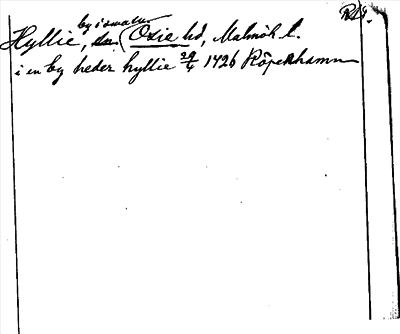 by i samma
Hyllie, sn. (Oxie hd, Malmöh l.
i en by heder hyllie 29/4 1426 Köpenhamn